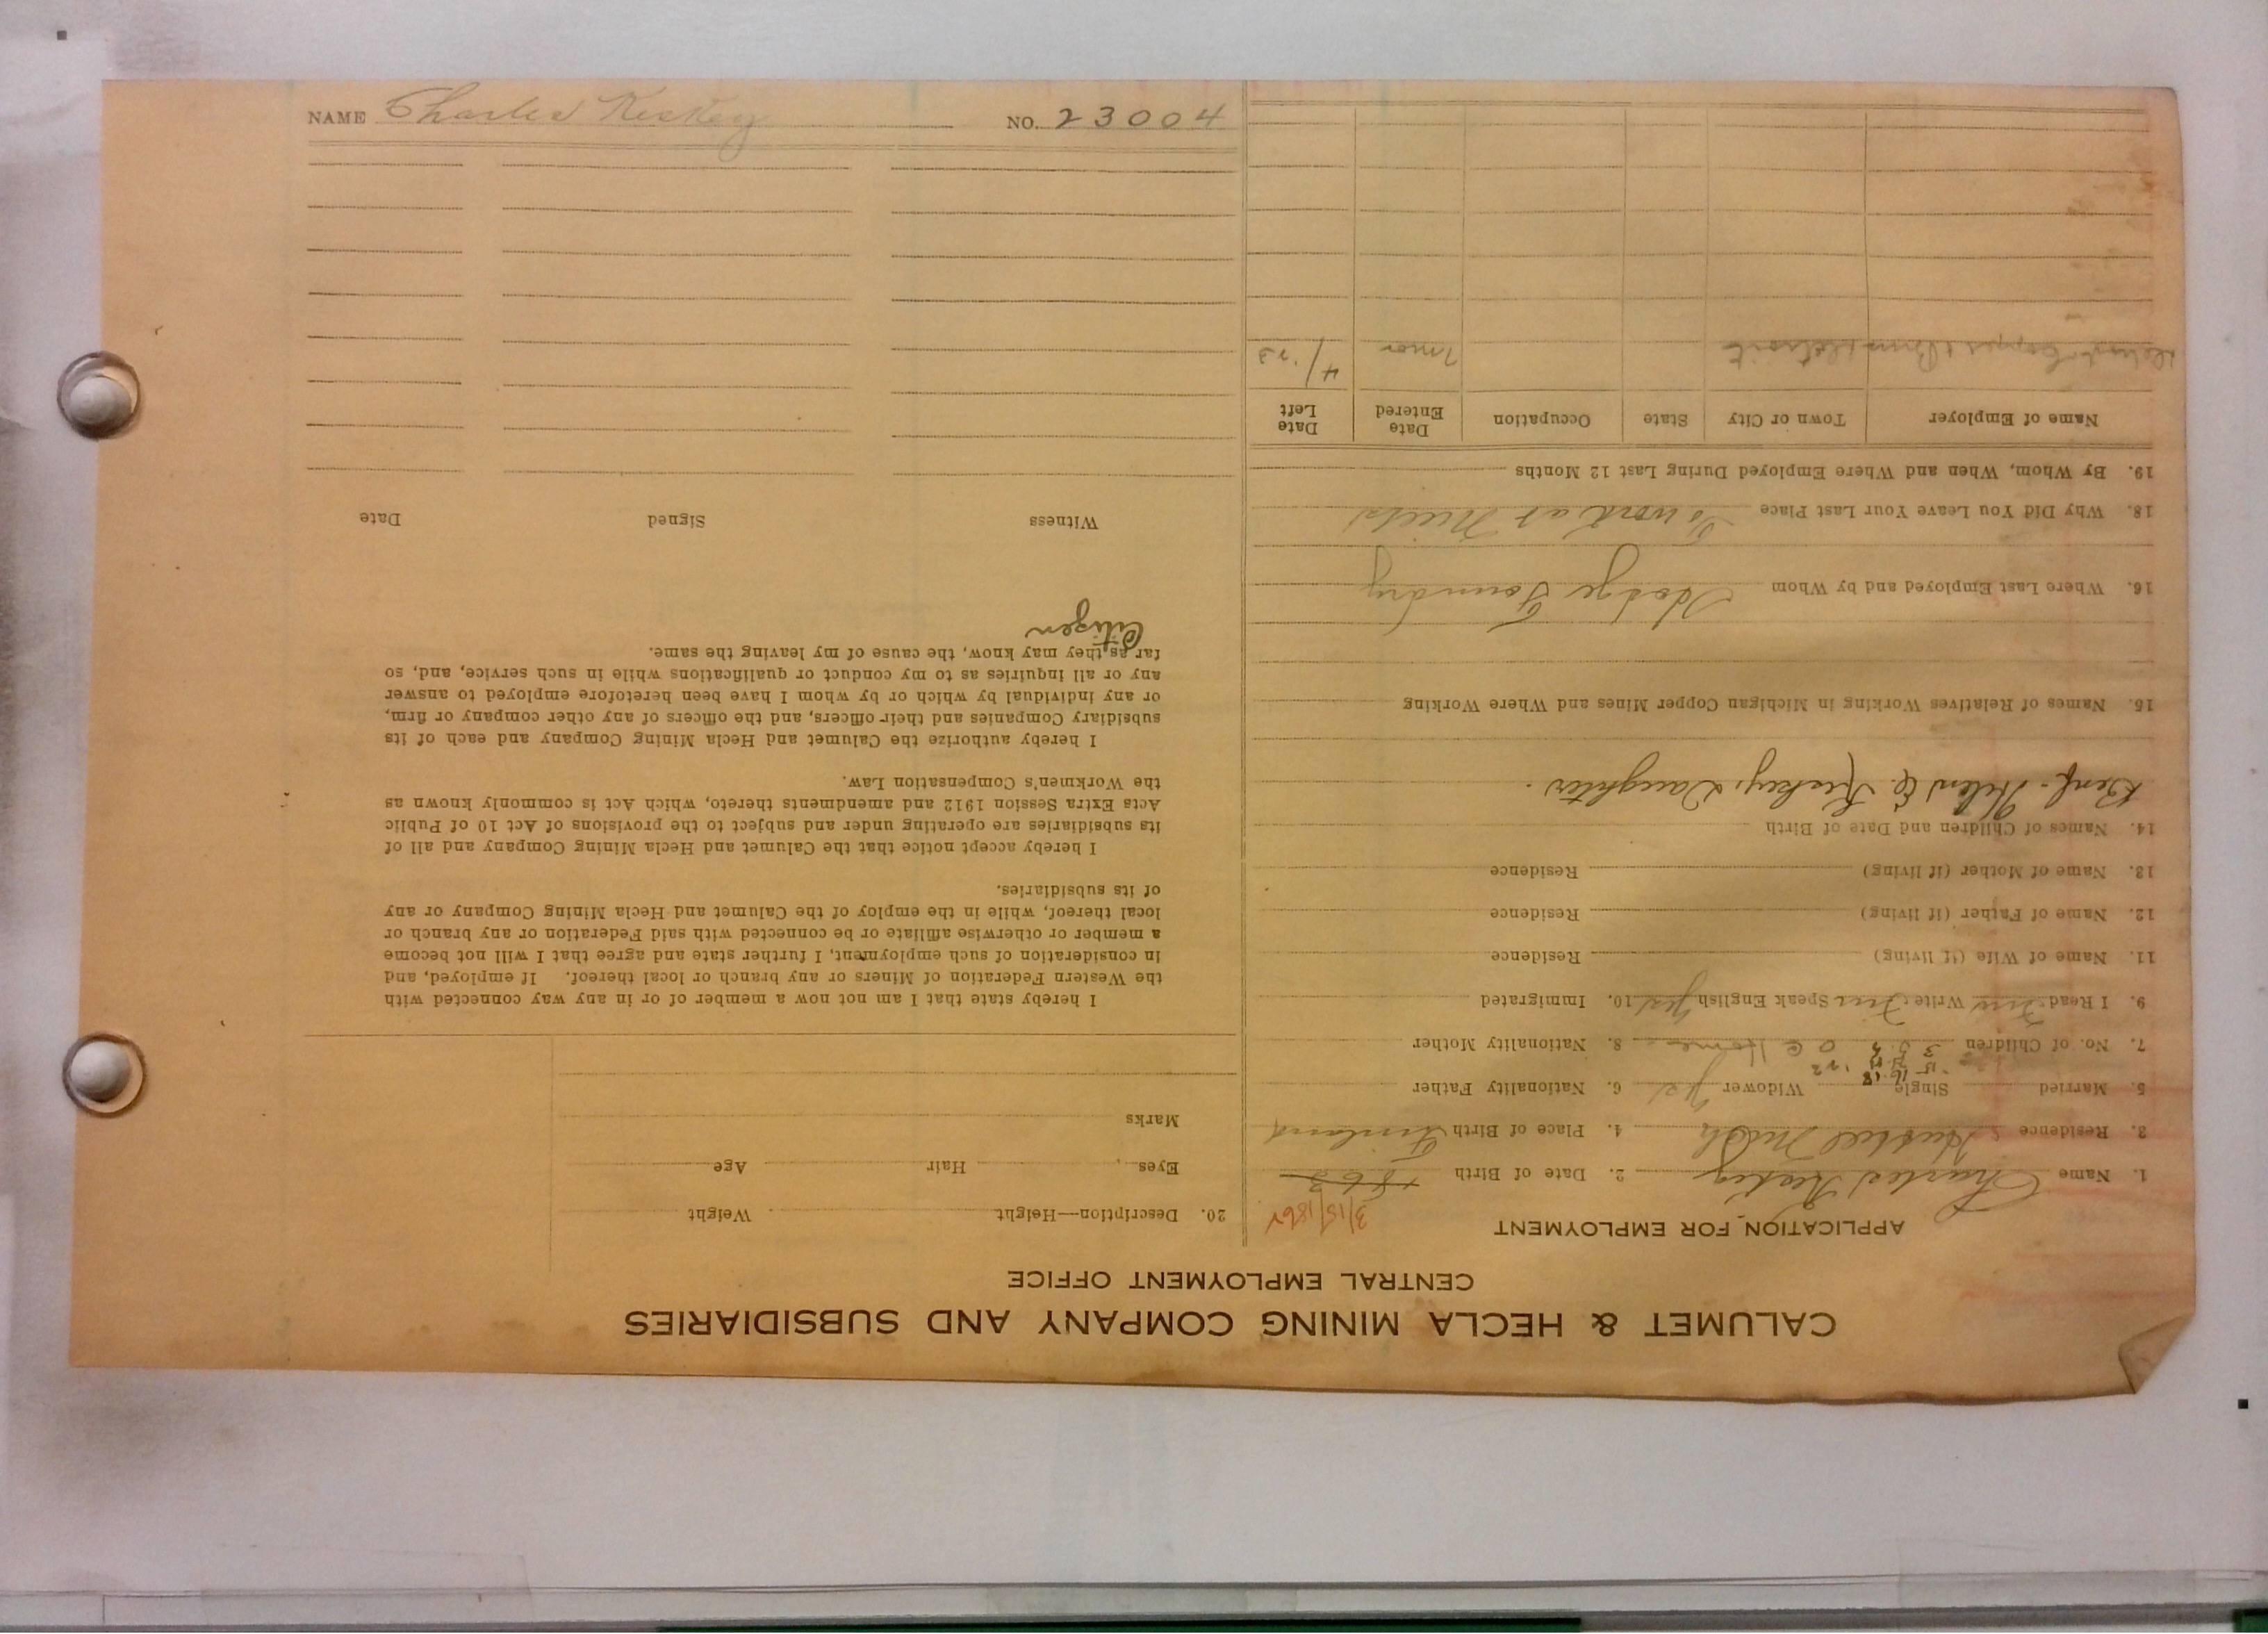 NAME Charles Keskey NO. 23004
CALUMET & HECLA MINING COMPANY AND SUBSIDIARIES
CENTRAL EMPLOYMENT OFFICE
APPLICATION FOR EMPLOYMENT
3/15/1862
1. Name Charles Keskey 2. Date of Birth 1863
3. Residence Hubbell Mich 4. Place of Birth Finland
5. Married Single Widower Yes 6. Nationality Father
7. No. of Children 3 8. Nationality Mother
9. I Read Write Speak English Yes 10. Immigrated
11. Name of Wife (if living) Residence
12. Name of Father (if living) Residence
13. Name of Mother (if living) Residence
14. Names of Children and Date of Birth
Benf- Helen E Keskey, Daughter.
15. Names of Relatives Working in Michigan Copper Mines and Where Working
16. Where Last Employed and by Whom Hodge Foundry
18. Why Did You Leave Your Last Place To work at
19. By Whom, When and Where Employed During Last 12 Months
Name of Employer Town or City State Occupation Date Entered Date Left
Detroit Copper & Brass Detroit 7 mos 4/'23
20. Description—Height Weight
Eyes Hair Age
Marks
I hereby state that I am not now a member of or in any way connected with
the Western Federation of Miners or any branch or local thereof. If employed, and
in consideration of such employment, I further state and agree that I will not become
a member or otherwise affiliate or be connected with said Federation or any branch or
local thereof, while in the employ of the Calumet and Hecla Mining Company or any
of its subsidiaries.
I hereby accept notice that the Calumet and Hecla Mining Company and all of
its subsidiaries are operating under and subject to the provisions of Act 10 of Public
Acts Extra Session 1912 and amendments thereto, which Act is commonly known as
the Workmen's Compensation Law.
I hereby authorize the Calumet and Hecla Mining Company and each of its
subsidiary Companies and their officers, and the officers of any other company or firm,
or any individual by which or by whom I have been heretofore employed to answer
any or all inquiries as to my conduct or qualifications while in such service, and, so
far as they may know, the cause of my leaving the same.
Citizen
Witness Signed Date